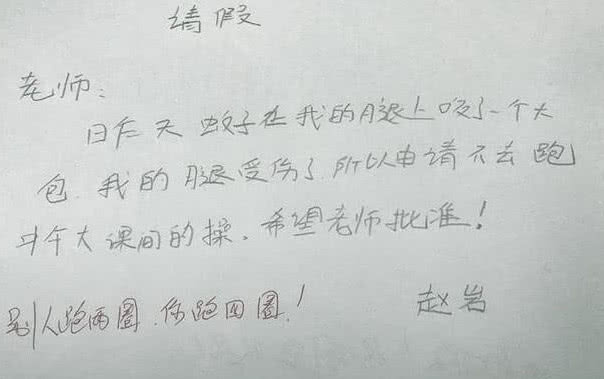 请假
老师：
昨天 蚊子在我的腿上咬了一个大
包.我的腿受伤了.所以申请不去跑
午大课间的操.希望老师批准！
赵岩
别人跑两圈.你跑四圈！